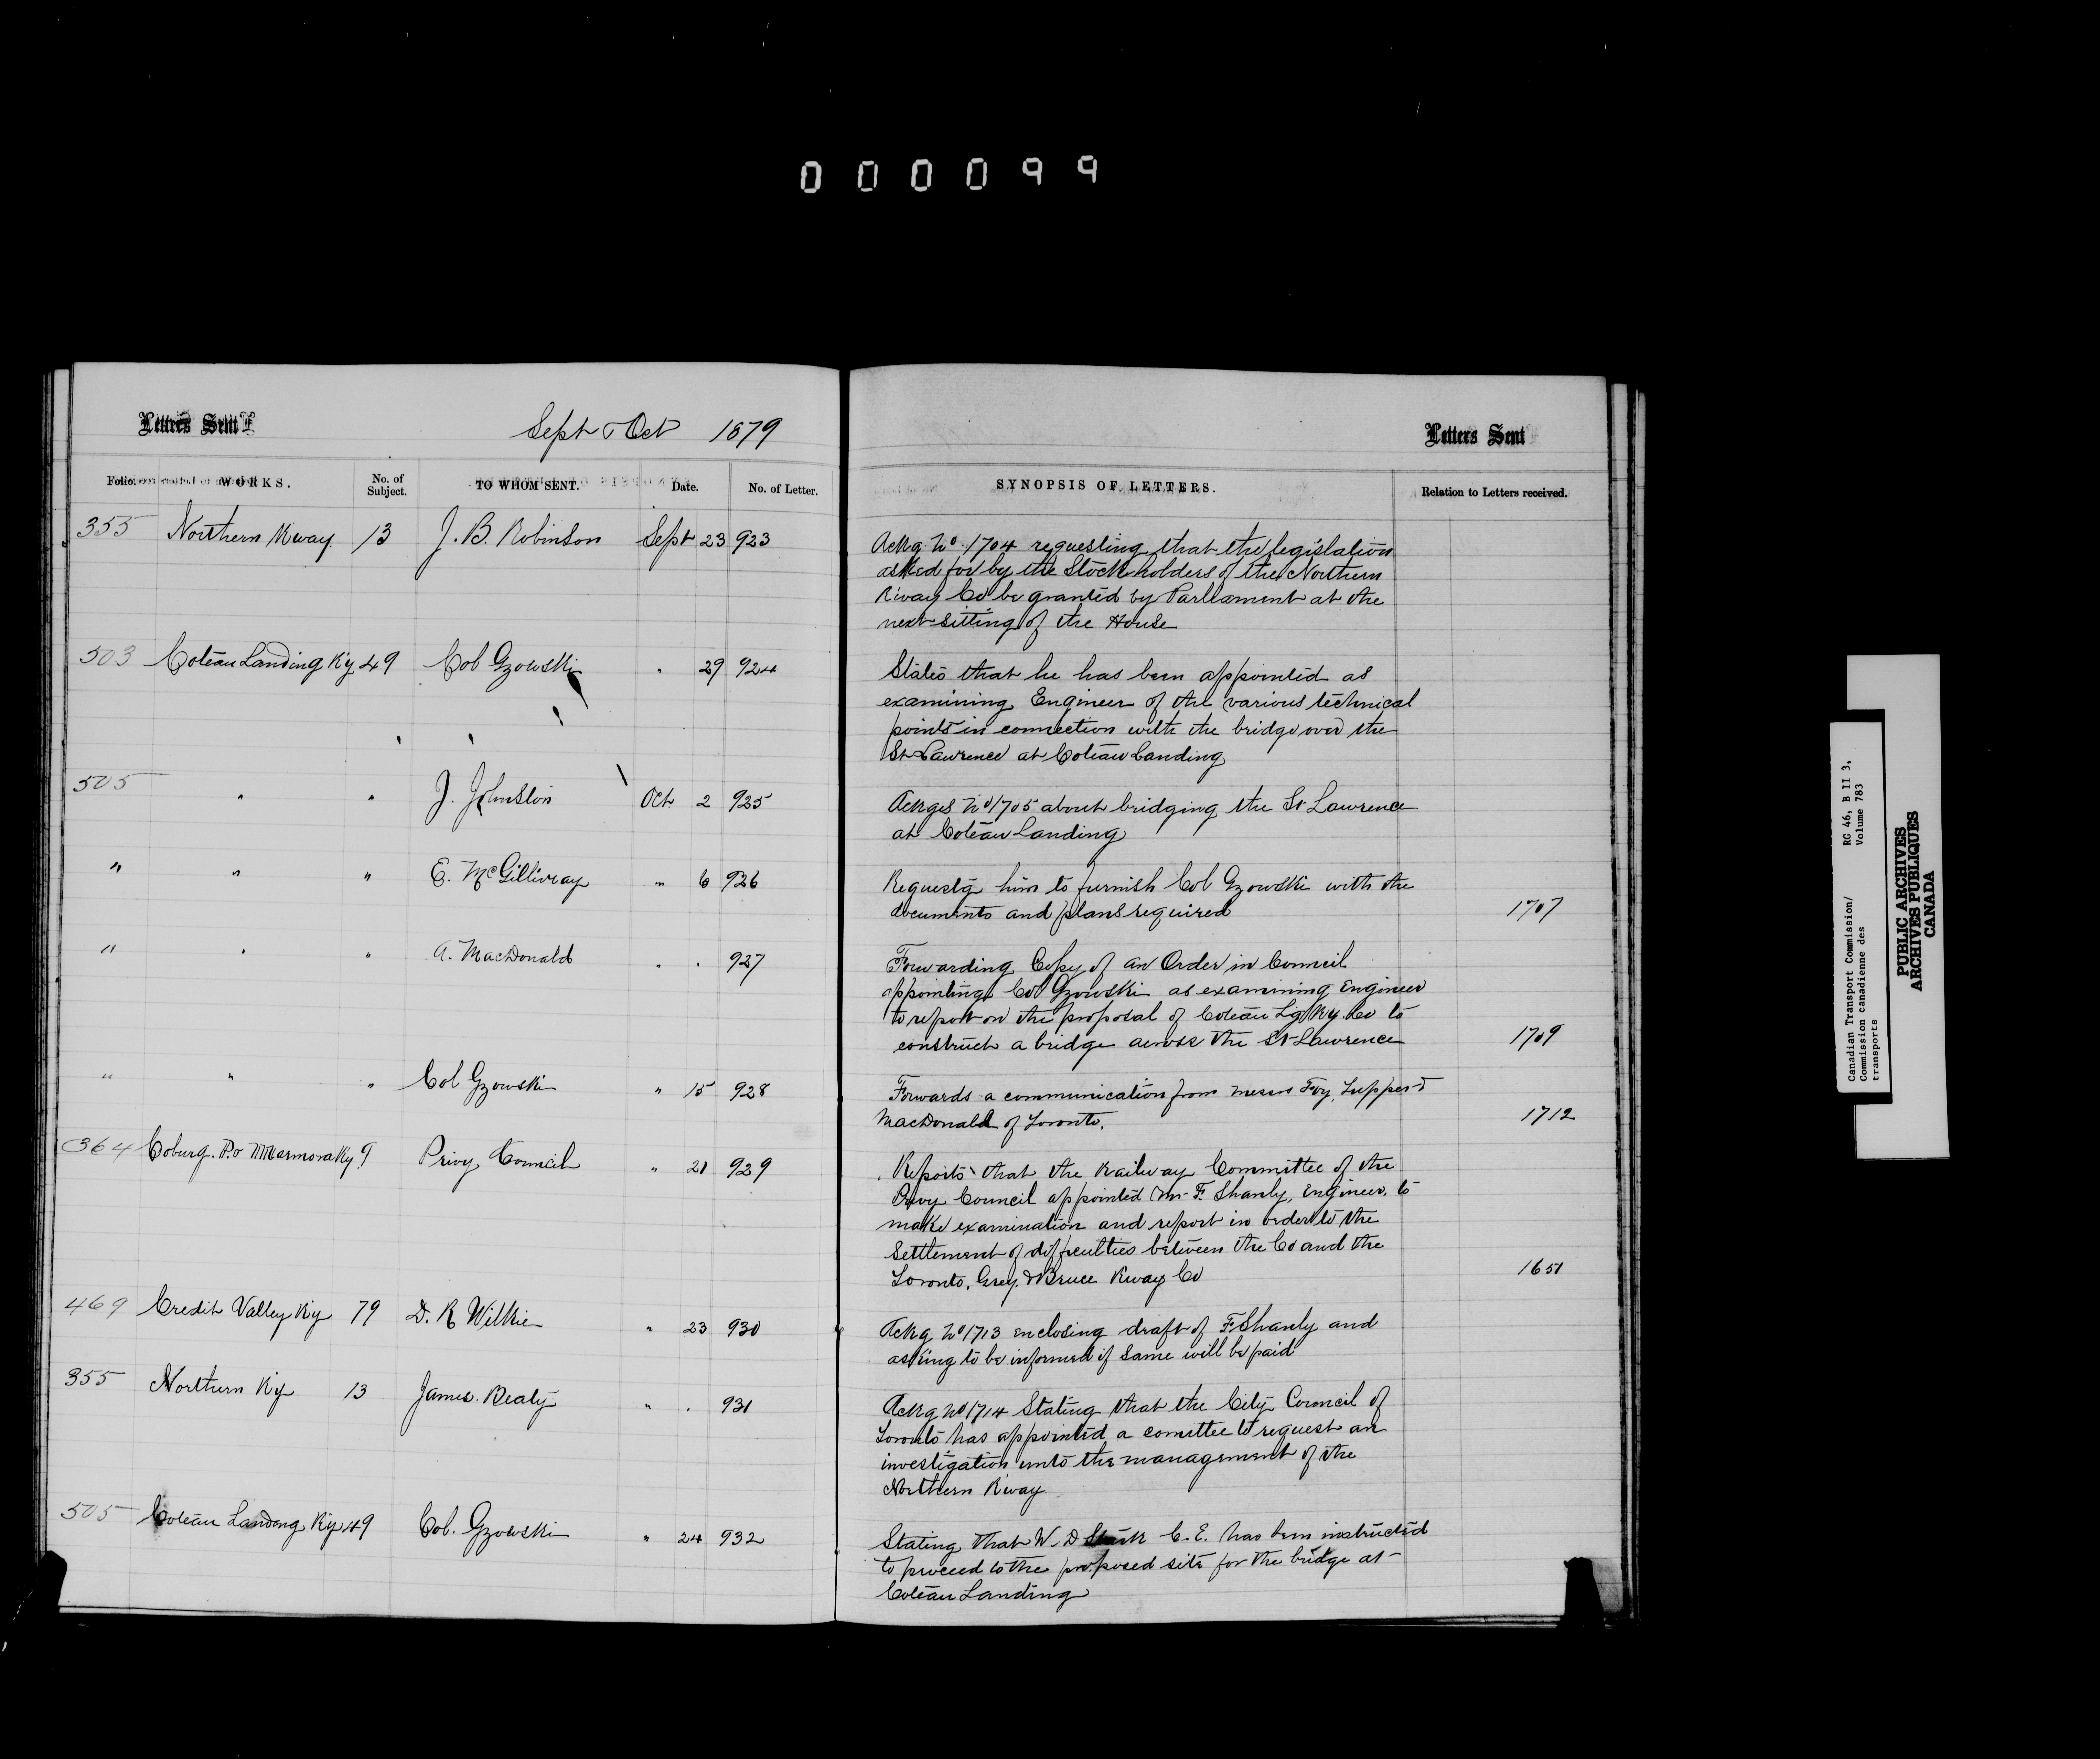 000099
Letters Sent
Sept & Oct 1879
Letters Sent
Folio. WORKS. No. of Subject. TO WHOM SENT. Date. No. of Letter. SYNOPSIS OF LETTERS. Relation to Letters received.
355 Northern Rway 13 J. B. Robinson Sept 23 923
Ackg. No. 1704 requesting that the legislation
asked for by the Stockholders of the Northern
Rway Co be granted by Parliament at the
next sitting of the House
503 Coteau Landing Ry 49 Col Gzowski " 29 924
States that he has been appointed as
examining Engineer of the various technical
points in connection with the bridge over the
St Lawrence at Coteau Landing
505 " " J. Johnston Oct 2 925
Ackges No 1705 about bridging the St Lawrence
at Coteau Landing
" " " E. McGillivray " 6 926
Requestg him to furnish Col Gzowski with the
documents and plans required 1707
" " " A. MacDonald " " 927
Forwarding Copy of an Order in Council
appointing Col Gzowski as examining Engineer
to report on the proposal of Coteau Lg Ry Co to
construct a bridge across the St Lawrence 1709
" " " Col Gzowski " 15 928
Forwards a communication from Messrs Foy, Tupper &
MacDonald of Toronto. 1712
364 Coburg. P. & Marmora Ry 9 Privy Council " 21 929
Reports that the Railway Committee of the
Privy Council appointed Mr F Shanly, Engineer, to
make examination and report in order to the
Settlement of difficulties between the Co and the
Toronto, Grey & Bruce Rway Co 1651
469 Credit Valley Ry 79 D. R Wilkie " 23 930
Ackg No 1713 enclosing draft of F Shanly and
asking to be informed if same will be paid
355 Northern Ry 13 James Beaty " " 931
Ackg No 1714 Stating that the City Council of
Toronto has appointed a comittee to request an
investigation into the management of the
Northern Rway
505 Coteau Landing Ry 49 Col. Gzowski " 24 932
Stating that W. D C. E. has been instructed
to proceed to the proposed site for the bridge at
Coteau Landing
Canadian Transport Commission/
Commission canadienne des
transports
RG 46, B II 3,
Volume 783
PUBLIC ARCHIVES
ARCHIVES PUBLIQUES
CANADA